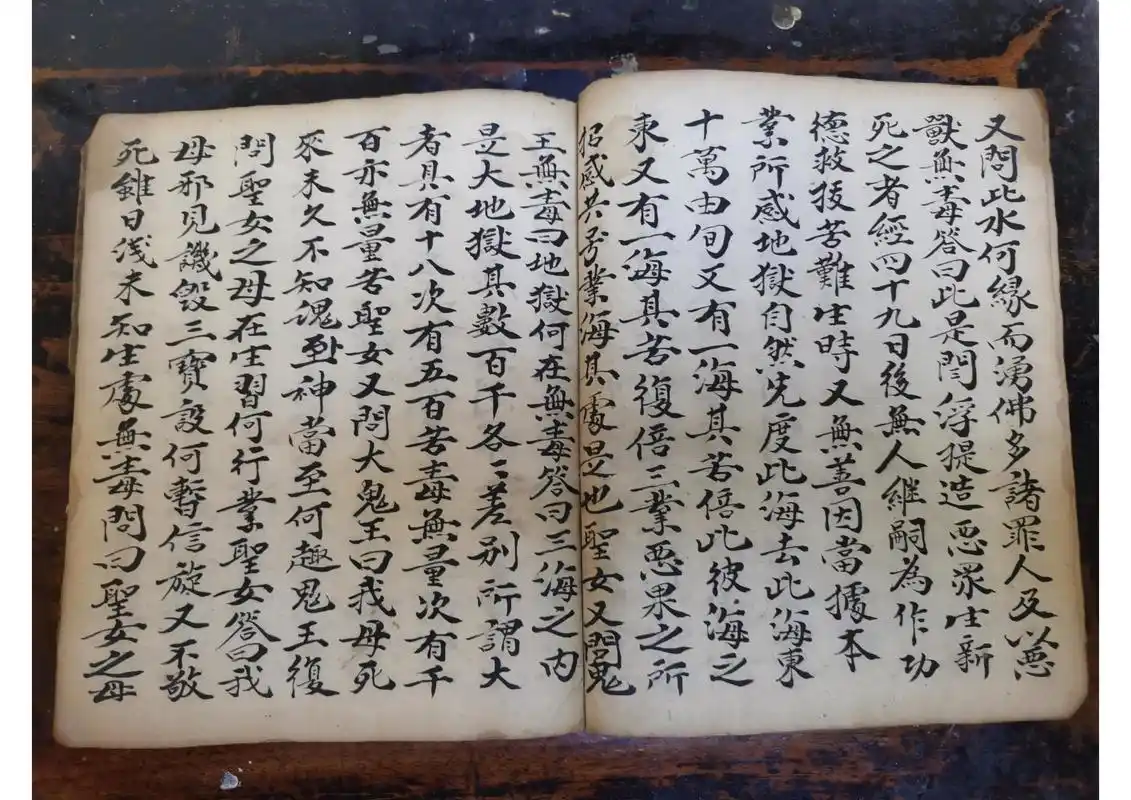 又問此水何緣而湧佛多諸罪人及以惡
獸無毒答曰此是閻浮提造惡眾生新
死之者經四十九日後無人継嗣為作功
德救拔苦難生時又無善因當據本
業所感地獄自然先度此海去此海東
十萬由旬又有一海其苦倍此彼海之
東又有一海其苦復倍三業惡果之所
招感共号業海其處是也聖女又問鬼
王無毒曰地獄何在無毒答曰三海之内
是大地獄其數百千各〻差别所謂大
者具有十八次有五百苦毒無量次有千
百亦無量苦聖女又問大鬼王曰我母死
來未久不知魂神當至何趣鬼王復
問聖女之母在生習何行業聖女答曰我
母邪見譏毀三寶設何暫信旋又不敬
死雖日浅未知生處無毒問曰聖女之母